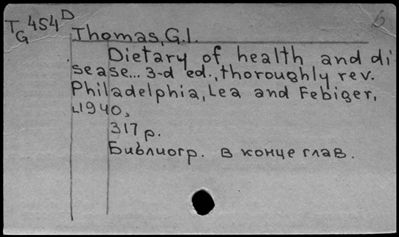 T 454 D
G
6
Thomas, G.I.
Dietary of health and di
sease... 3-d ed., thoroughly rev.
Philadelphia, Lea and Febiger,
1940,
317 p.
Библиогр. в конце глав.